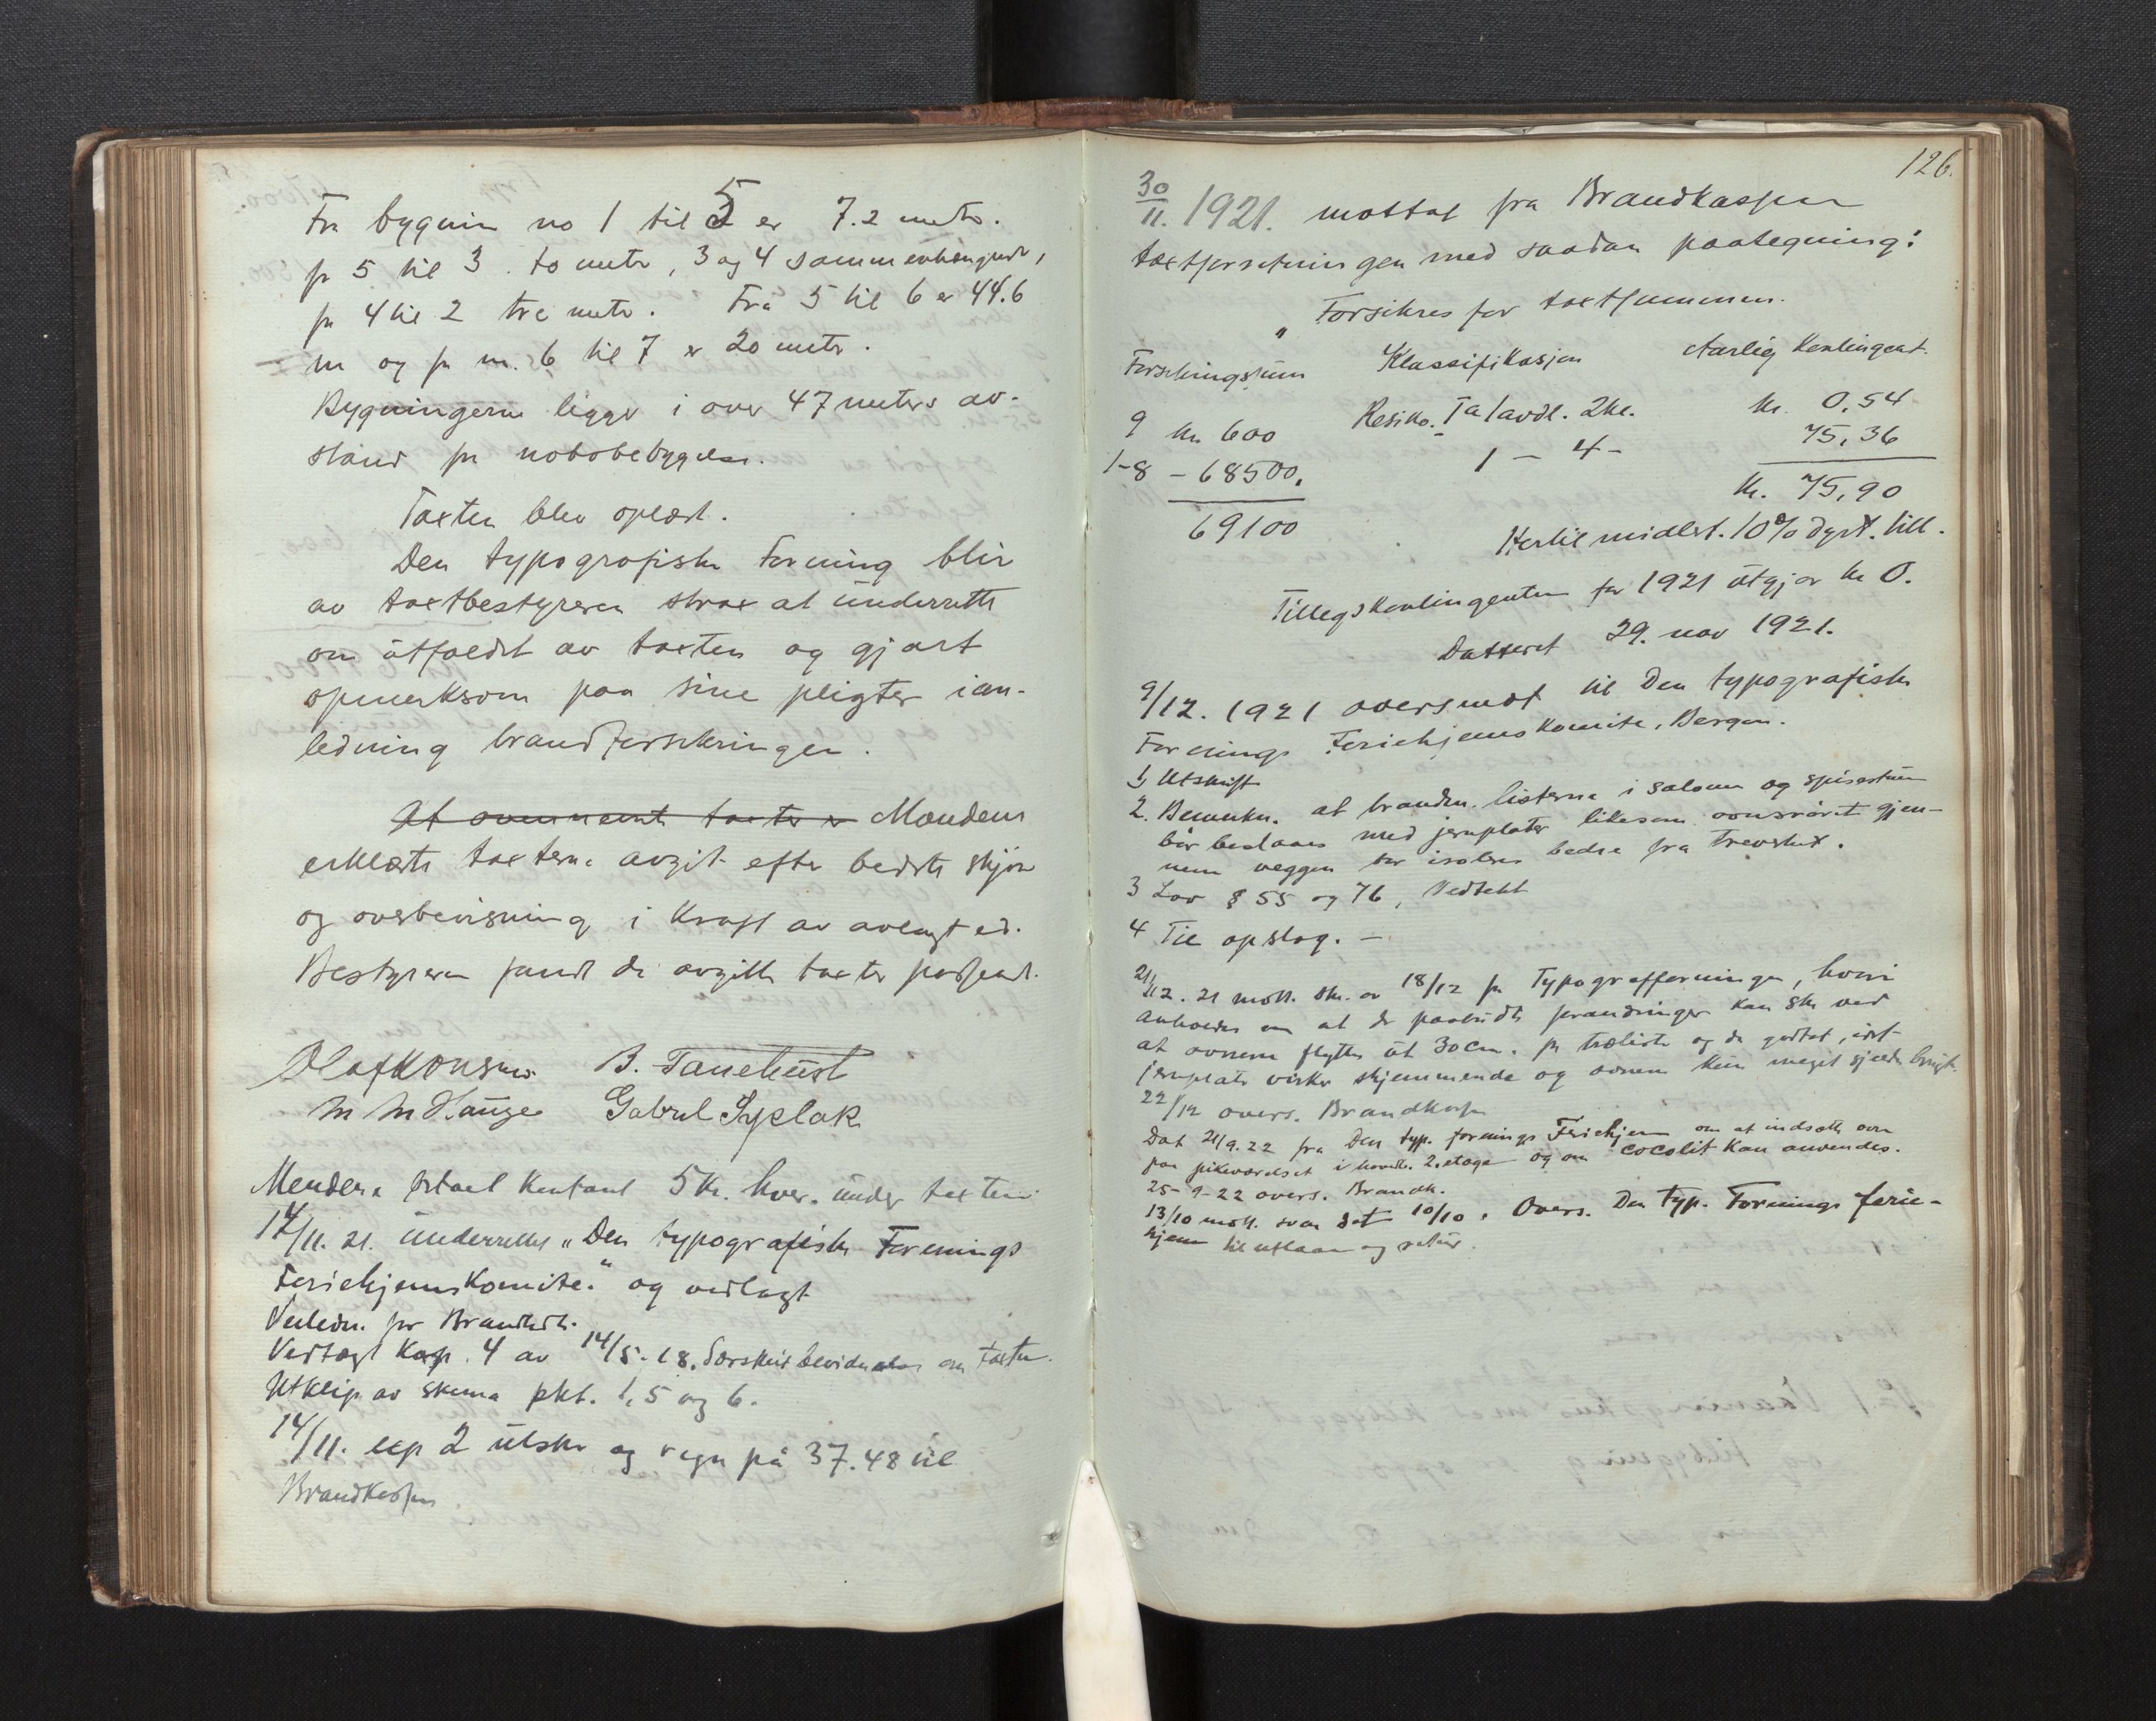 Fra bygnin no 1 til 5 er 7.2 metr.
fr 5 til 3. to metr, 3 og 4 sammenhengende,
fr 4 til 2 tre metr. Fra 5 til 6 er 44.6
m og fr nr. 6 til 7 er 20 metr.
Bygningerne ligger i over 47 meters av-
stand fra nabobebyggelse.
Taxten blev oplæst.
Den typografiske Forening blir
av taxtbestyreren strax at underrette
om utfaldet av taxten og gjort
opmerksom paa sine pligter i an-
ledning brandforsikringen.
At ovennevnte taxter er Mændene
erklærte taxterne avgit efter bedste skjøn
og overbevisning i kraft av avlagt ed.
Bestyreren fandt de avgitte taxter passende.
Olaf Konsmo B. Tanehust
M M Hauge Gabriel Syslak
Mændene betalt kontant 5 Kr. hver under taxten.
14/11. 21. underrettet „Den typografiske Forenings
Feriehjemskomite." og vedlagt
Veiledn. for Brandteds.
Vedtægt Kap. 4 av 14/5-18. Særskilt bevidnelse om taxten.
Utklip av skema pkt. 1, 5 og 6.
14/11. exp 2 utskr og regn på 37.48 til
Brandkassen.
126.
30/11. 1921. mottat fra Brandkassen
taxtforretningen med saadan paategning:
„Forsikres for taxtsummen.
Forsikringssum Klassifikasjon Aarlig Kontingent.
9 kr. 600 Resiko. Ta 1 avdl. 2kl. kr. 0.54
1-8 - 68500. 1 - 4 - 75,36
69100 kr. 75,90
Hertil midlert. 10% dyrt. till.
Tillegskontingenten for 1921 utgjør kr 0.
Dattert 29. nov 1921.
9/12. 1921 oversendt til Den typografiske
Forenings Feriehjemskomite, Bergen.
1, Utskrift
2. Bemerkn. at brandm. listerne i salonen og spisestuen
bør beslaaes med jernplater likesom ovnsrøret gjen-
nem veggen bør isoleres bedre fra treverket.
3 Lov § 55 og 76, Vedtekt
4 Til opslag. -
21/12. 21 mott. skr. av 18/12 fra Typografforeningen, hvori
anholdes om at de paabudte forandringer kan ske ved
at ovnene flyttes ut 30 cm. fra trælister og da godtat, idet
jernplater virker skjemmende og ovnene kun meget sjelden brugt.
22/12 overs. Brandkassen
Dat 21/9.22 fra Den typ. forenings Feriehjem om at indsætte ovn
paa pikeværelset i hovedb. 2. etage og om cocolit kan anvendes.
25-9-22 overs. Brandk.
13/10 mott. svar dat 10/10. Overs. Den typ. Forenings ferie-
hjem til utlaan og retur.